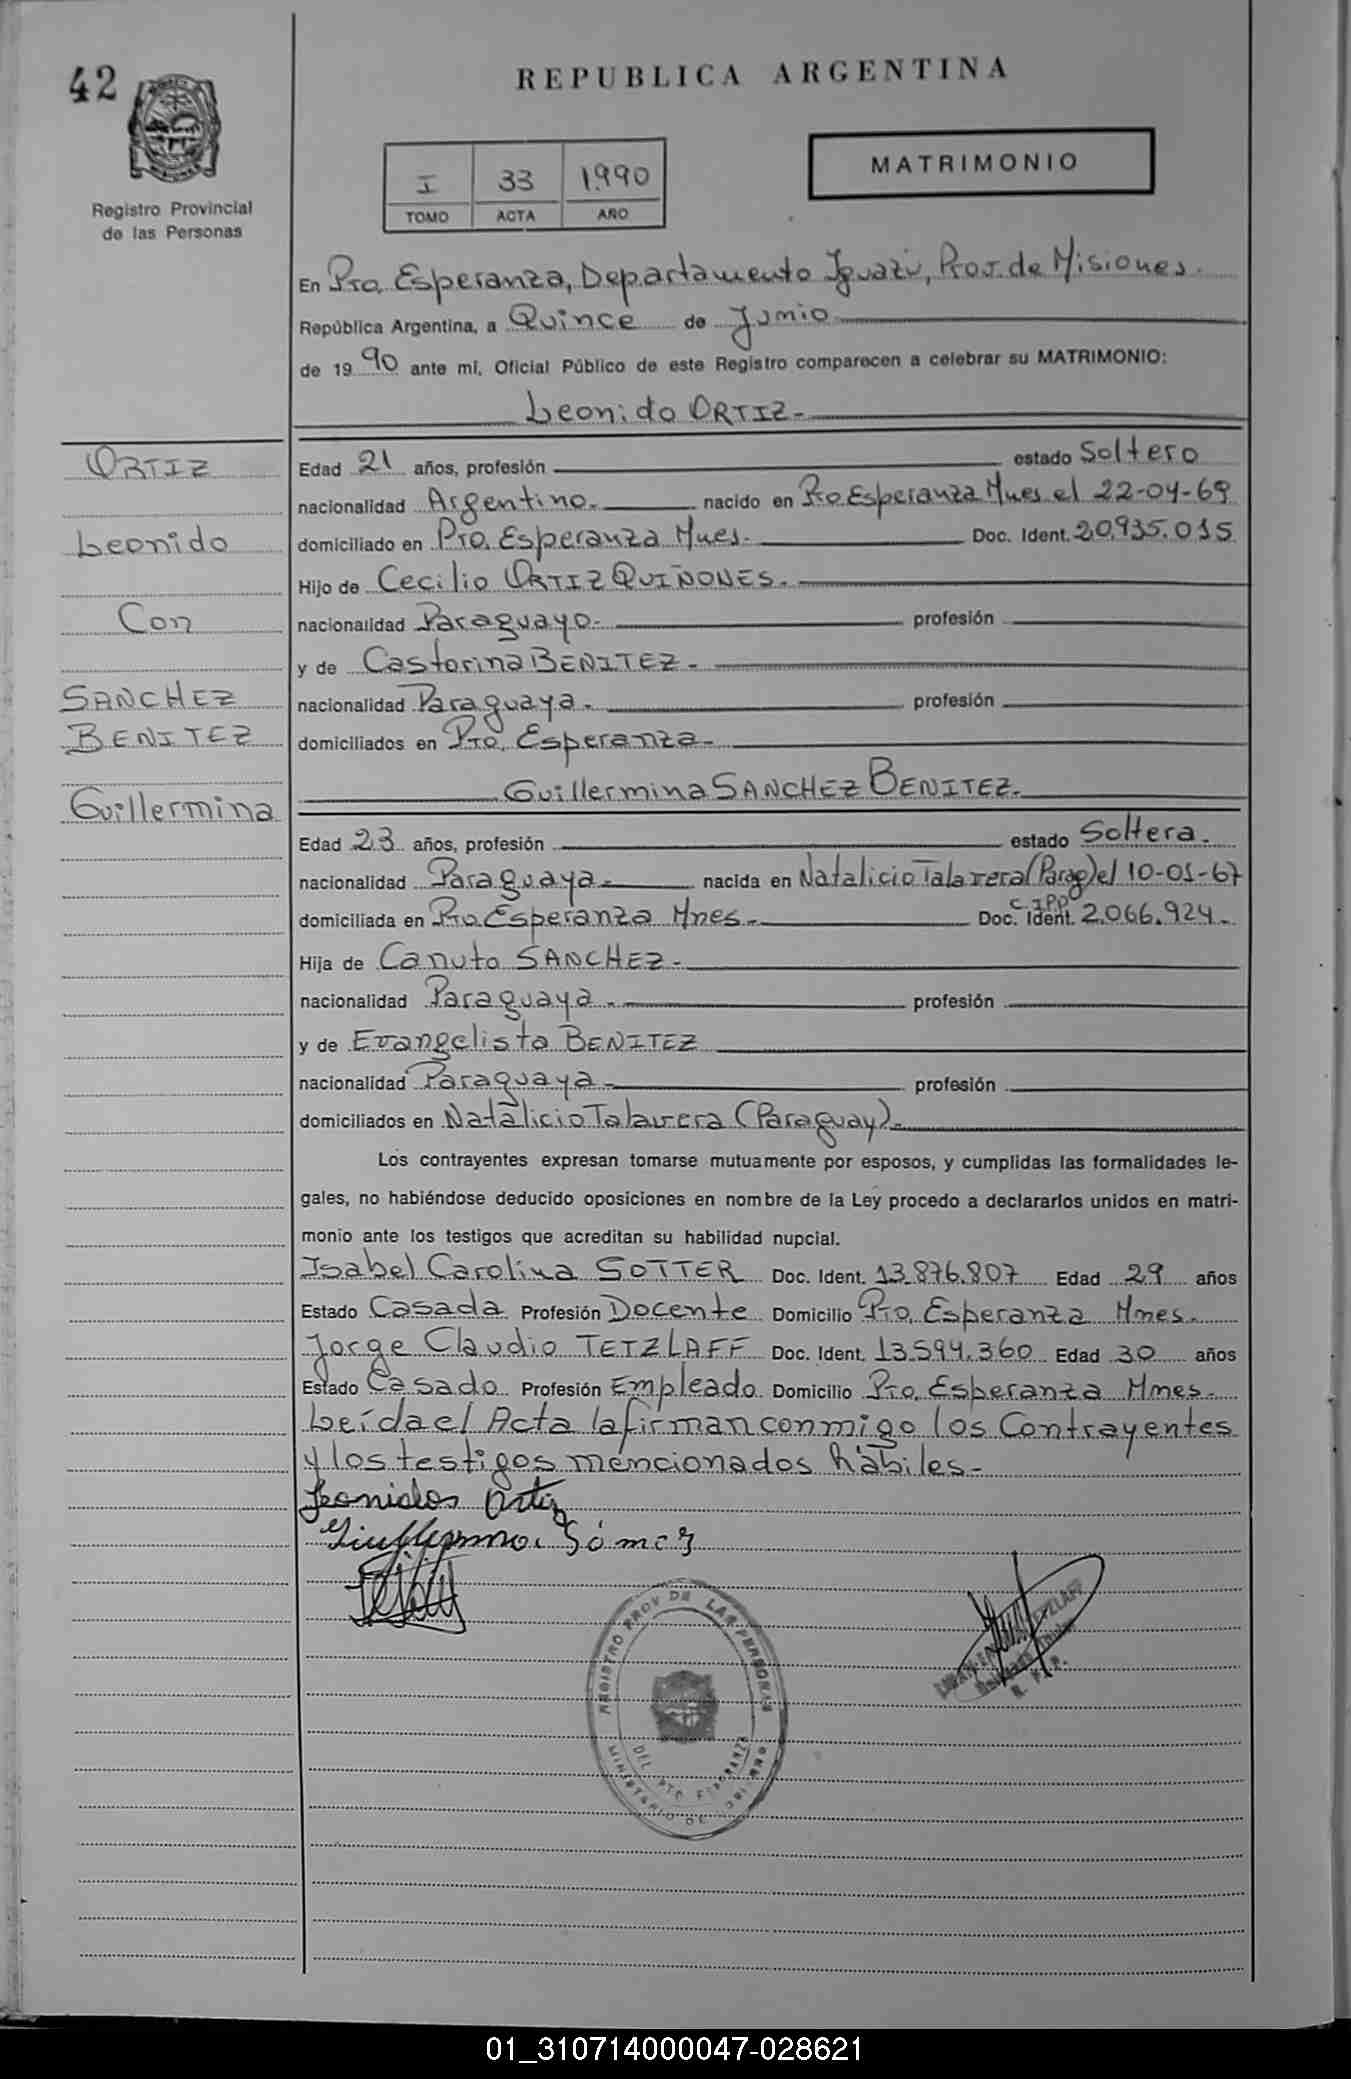 42
REPUBLICA ARGENTINA
MATRIMONIO
I 33 1990
TOMO ACTA AÑO
Registro Provincial
de las Personas
En Pto. Esperanza, Departamento Iguazú, Prov. de Misiones.
República Argentina, a Quince de Junio
de 1990 ante mí, Oficial Público de este Registro comparecen a celebrar su MATRIMONIO:
Leonido ORTIZ-
ORTIZ
Leonido
Con
SANCHEZ
BENITEZ
Guillermina
Edad 21 años, profesión estado Soltero
nacionalidad Argentino. nacido en Pto Esperanza Mnes el 22-04-69
domiciliado en Pto. Esperanza Mnes. Doc. Ident. 20.935.015
Hijo de Cecilio ORTIZ QUIÑONES.
nacionalidad Paraguayo- profesión
y de Castorina BENITEZ-
nacionalidad Paraguaya. profesión
domiciliados en Pto. Esperanza-
Guillermina SANCHEZ BENITEZ.
Edad 23 años, profesión estado Soltera.
nacionalidad Paraguaya- nacida en Natalicio Talavera (Parag) el 10-01-67
domiciliada en Pto Esperanza Mnes- Doc. Ident. 2.066.924-
Hija de Canuto SANCHEZ-
nacionalidad Paraguaya. profesión
y de Evangelista BENITEZ
nacionalidad Paraguaya- profesión
domiciliados en Natalicio Talavera (Paraguay).
Los contrayentes expresan tomarse mutuamente por esposos, y cumplidas las formalidades le-
gales, no habiéndose deducido oposiciones en nombre de la Ley procedo a declararlos unidos en matri-
monio ante los testigos que acreditan su habilidad nupcial.
Isabel Carolina SOTTER Doc. Ident. 13.876.807 Edad 29 años
Estado Casada Profesión Docente Domicilio Pto. Esperanza Mnes.
Jorge Claudio TETZLAFF Doc. Ident. 13.594.360 Edad 30 años
Estado Casado Profesión Empleado Domicilio Pto. Esperanza Mnes.
Leída el Acta la firman conmigo los Contrayentes
y los testigos mencionados hábiles-
Leonidos Ortiz
Guillermina Gómez
REGISTRO PROV DE LAS PERSONAS
DEL PTO ESPERANZA
MINISTERIO DE
01_310714000047-028621